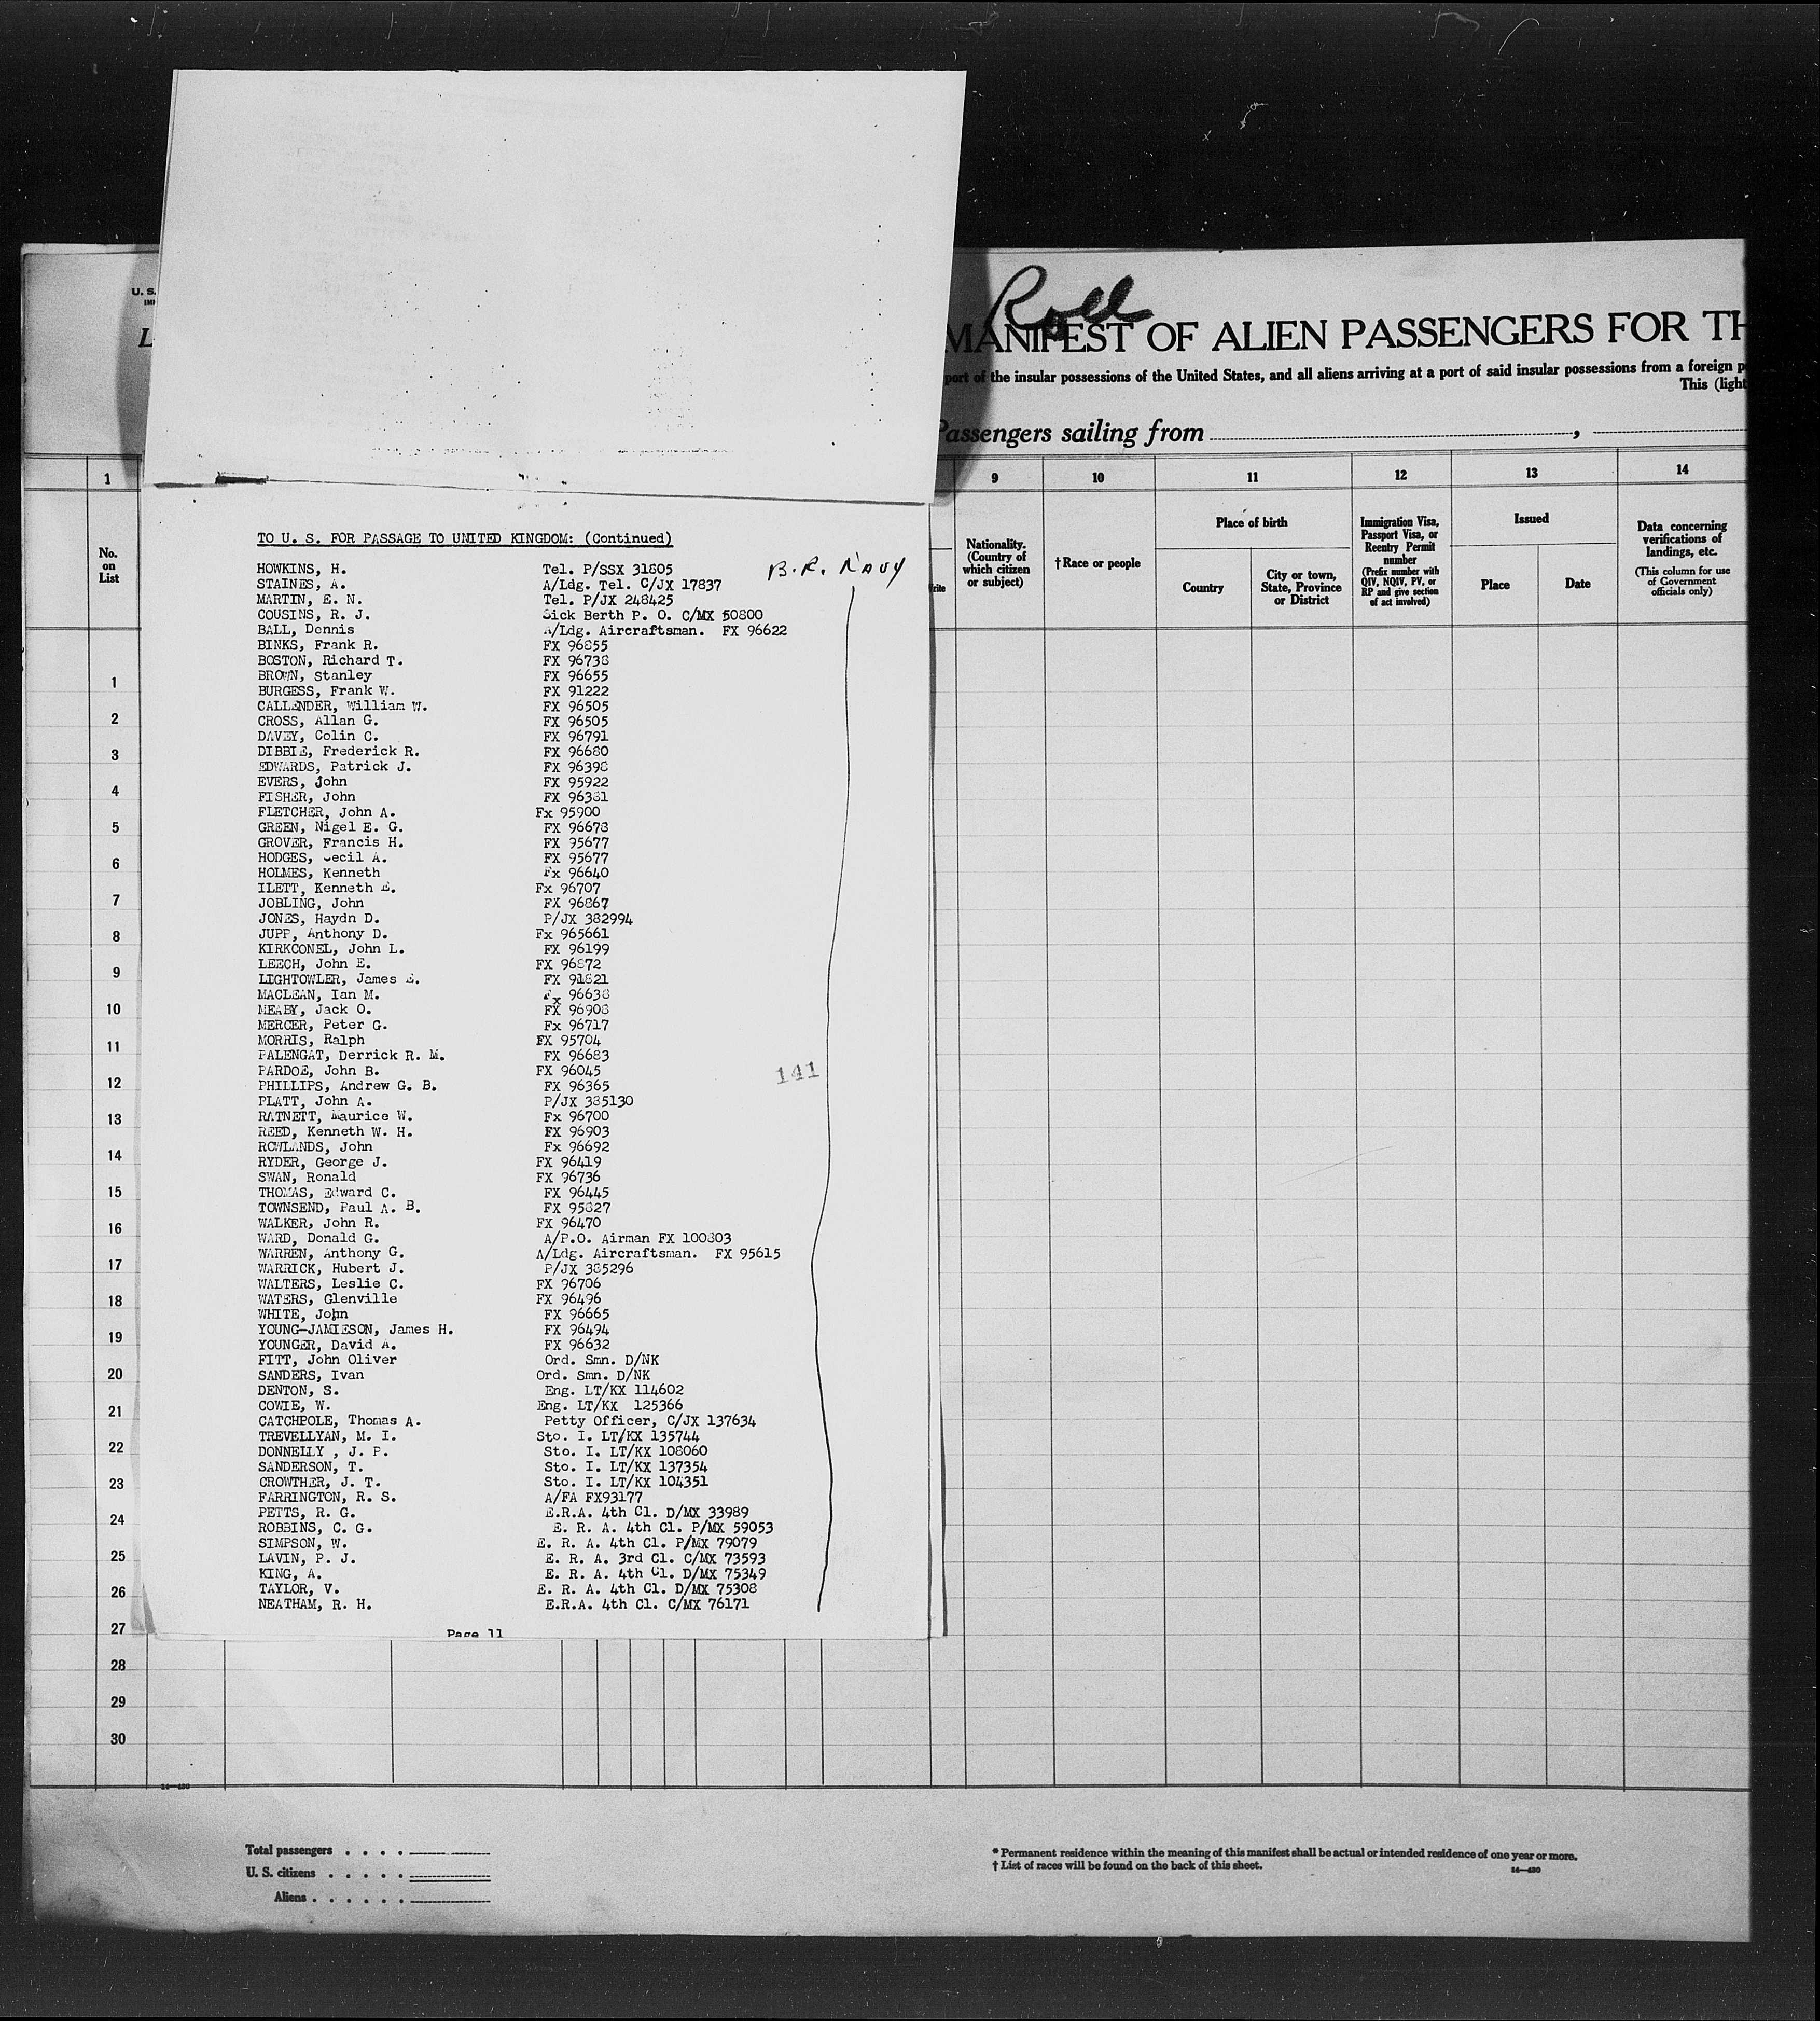 Roll
U. S.
MANIFEST OF ALIEN PASSENGERS FOR TH
port of the insular possessions of the United States, and all aliens arriving at a port of said insular possessions from a foreign p
This (light
Passengers sailing from
1 9 10 11 12 13 14
No. on List
Nationality. (Country of which citizen or subject)
†Race or people
Place of birth
Country
City or town, State, Province or District
Immigration Visa, Passport Visa, or Reentry Permit number
(Prefix number with QIV, NQIV, PV, or RP and give section of act involved)
Issued
Place
Date
Data concerning verifications of landings, etc.
(This column for use of Government officials only)
TO U. S. FOR PASSAGE TO UNITED KINGDOM: (Continued)
B.R. NAVY
HOWKINS, H. Tel. P/SSX 31805
STAINES, A. A/Ldg. Tel. C/JX 17837
MARTIN, E. N. Tel. P/JX 248425
COUSINS, R. J. Sick Berth P. O. C/MX 50800
BALL, Dennis A/Ldg. Aircraftsman. FX 96622
BINKS, Frank R. FX 96855
BOSTON, Richard T. FX 96738
BROWN, Stanley FX 96655
BURGESS, Frank W. FX 91222
CALLENDER, William W. FX 96505
CROSS, Allan G. FX 96505
DAVEY, Colin C. FX 96791
DIBBIE, Frederick R. FX 96680
EDWARDS, Patrick J. FX 96398
EVERS, John FX 95922
FISHER, John FX 96381
FLETCHER, John A. Fx 95900
GREEN, Nigel E. G. FX 96678
GROVER, Francis H. FX 95677
HODGES, Cecil A. FX 95677
HOLMES, Kenneth Fx 96640
ILETT, Kenneth E. Fx 96707
JOBLING, John FX 96867
JONES, Haydn D. P/JX 382994
JUPP, Anthony D. Fx 965661
KIRKCONEL, John L. FX 96199
LEECH, John E. FX 96872
LIGHTOWLER, James E. FX 91821
MACLEAN, Ian M. Fx 96638
MEABY, Jack O. FX 96908
MERCER, Peter G. Fx 96717
MORRIS, Ralph FX 95704
PALENGAT, Derrick R. M. FX 96683
PARDOE, John B. FX 96045
141
PHILLIPS, Andrew G. B. FX 96365
PLATT, John A. P/JX 385130
RATNETT, Maurice W. Fx 96700
REED, Kenneth W. H. FX 96903
ROWLANDS, John Fx 96692
RYDER, George J. FX 96419
SWAN, Ronald FX 96736
THOMAS, Edward C. FX 96445
TOWNSEND, Paul A. B. FX 95827
WALKER, John R. FX 96470
WARD, Donald G. A/P.O. Airman FX 100803
WARREN, Anthony G. A/Ldg. Aircraftsman. FX 95615
WARRICK, Hubert J. P/JX 385296
WALTERS, Leslie C. FX 96706
WATERS, Glenville FX 96496
WHITE, John FX 96665
YOUNG-JAMIESON, James H. FX 96494
YOUNGER, David A. FX 96632
FITT, John Oliver Ord. Smn. D/NK
SANDERS, Ivan Ord. Smn. D/NK
DENTON, S. Eng. LT/KX 114602
COWIE, W. Eng. LT/KX 125366
CATCHPOLE, Thomas A. Petty Officer, C/JX 137634
TREVELLYAN, M. I. Sto. I. LT/KX 135744
DONNELLY , J. P. Sto. I. LT/KX 108060
SANDERSON, T. Sto. I. LT/KX 137354
CROWTHER, J. T. Sto. I. LT/KX 104351
FARRINGTON, R. S. A/FA FX93177
PETTS, R. G. E.R.A. 4th Cl. D/MX 33989
ROBBINS, C. G. E. R. A. 4th Cl. P/MX 59053
SIMPSON, W. E. R. A. 4th Cl. P/MX 79079
LAVIN, P. J. E. R. A. 3rd Cl. C/MX 73593
KING, A. E. R. A. 4th Cl. D/MX 75349
TAYLOR, V. E. R. A. 4th Cl. D/MX 75308
NEATHAM, R. H. E.R.A. 4th Cl. C/MX 76171
Page 11
1
2
3
4
5
6
7
8
9
10
11
12
13
14
15
16
17
18
19
20
21
22
23
24
25
26
27
28
29
30
Total passengers
U. S. citizens
Aliens
* Permanent residence within the meaning of this manifest shall be actual or intended residence of one year or more.
† List of races will be found on the back of this sheet.